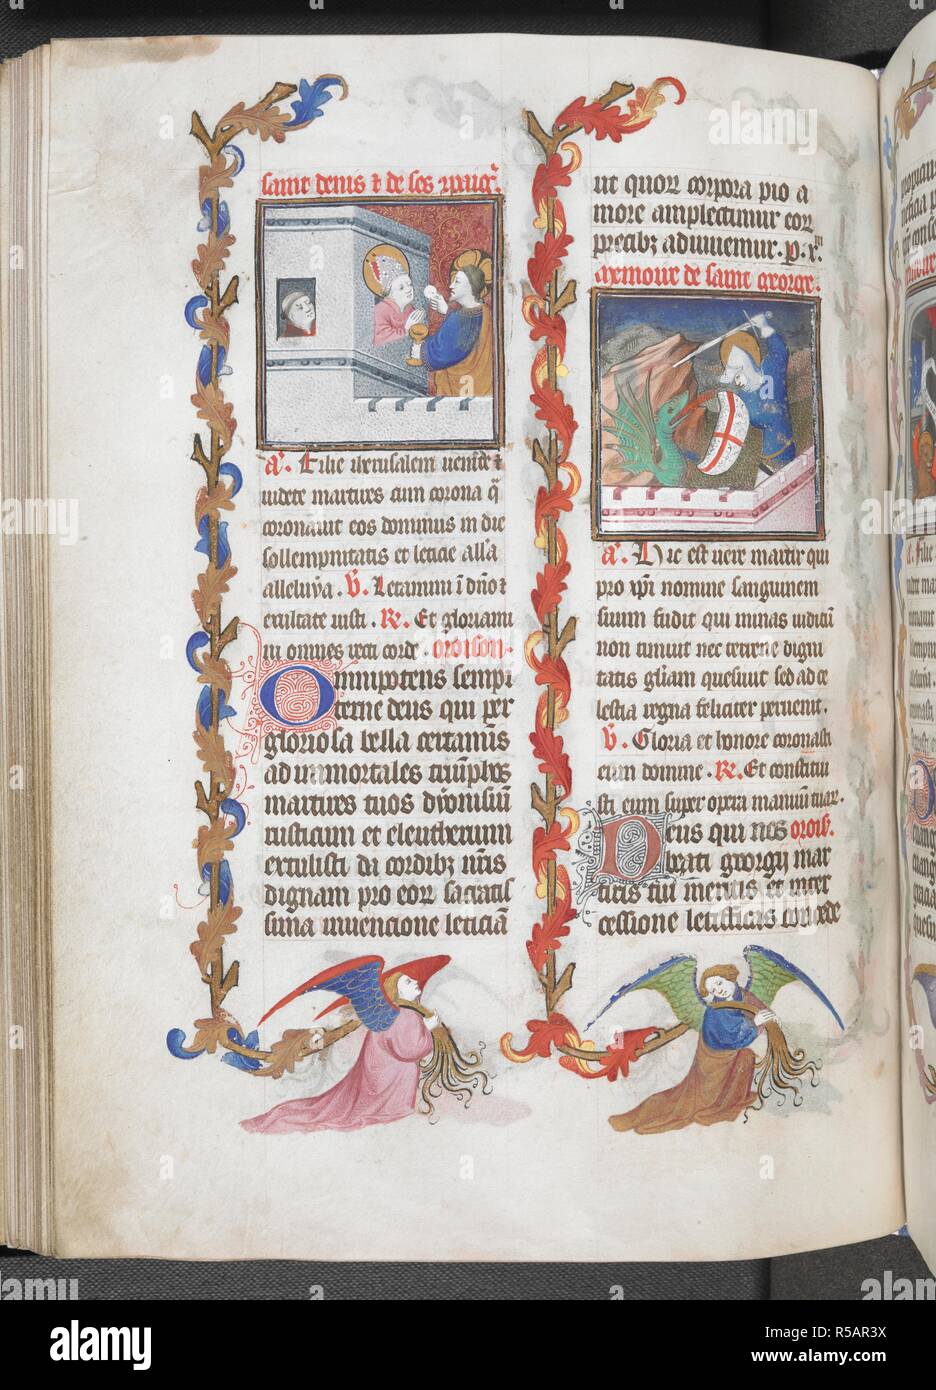 saint denis & de ses 9paig͛.
a͛. Filie iherusalem venite &
videte martires cum corona q̄
coronauit eos dominus in die
sollempnitatis et leticie all'a
alleluya. v̄. Letamini ī dn̄o &
exultate iusti. R̄. Et gloriami
ni omnes recti corde. oroison.
Omnipotens sempi
terne deus qui per
gloriosa bella certamis
ad immortales triūphos
martires tuos dyonisiū
rusticum et eleutherum
extulisti da cordibꝫ nr̄is
dignam pro eoꝝ sacratis
sima inuencione leticiā
ut quoꝝ corpora pio a
more amplectimur eoꝝ
precibꝫ adiuuemur. p. x̄m
memour de saint george.
a͛. Hic est vere martir qui
pro xp̄i nomine sanguinem
suum fudit qui minas iudicū
non timuit nec terrene digni
tatis gl̄iam quesiuit sed ad ce
lestia regna feliciter peruenit.
v̄. Gloria et honore coronasti
eum domine. R̄. Et constitui
sti eum super opera manuū tuar.
Deus qui nos orois͛.
beati georgij mar
tiris tui meritis et inter
cessione letificas concede
alamy
Image ID: R5AR3X
www.alamy.com